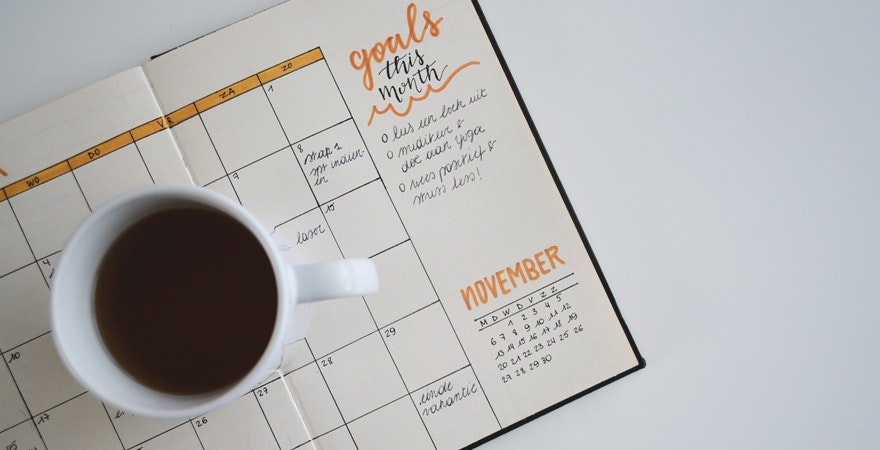 WO DO VR ZA ZO
1
8
stap 1
indien-
en
9
15
laser
4
10
17
26
27
28
29
einde
vakantie
goals
this
month
o lees een boek uit
o mediteer &
doe aan yoga
o wees positief &
stress less!
NOVEMBER
M D W D V Z Z
1 2 3 4 5
6 7 8 9 10 11 12
13 14 15 16 17 18 19
20 21 22 23 24 25 26
27 28 29 30